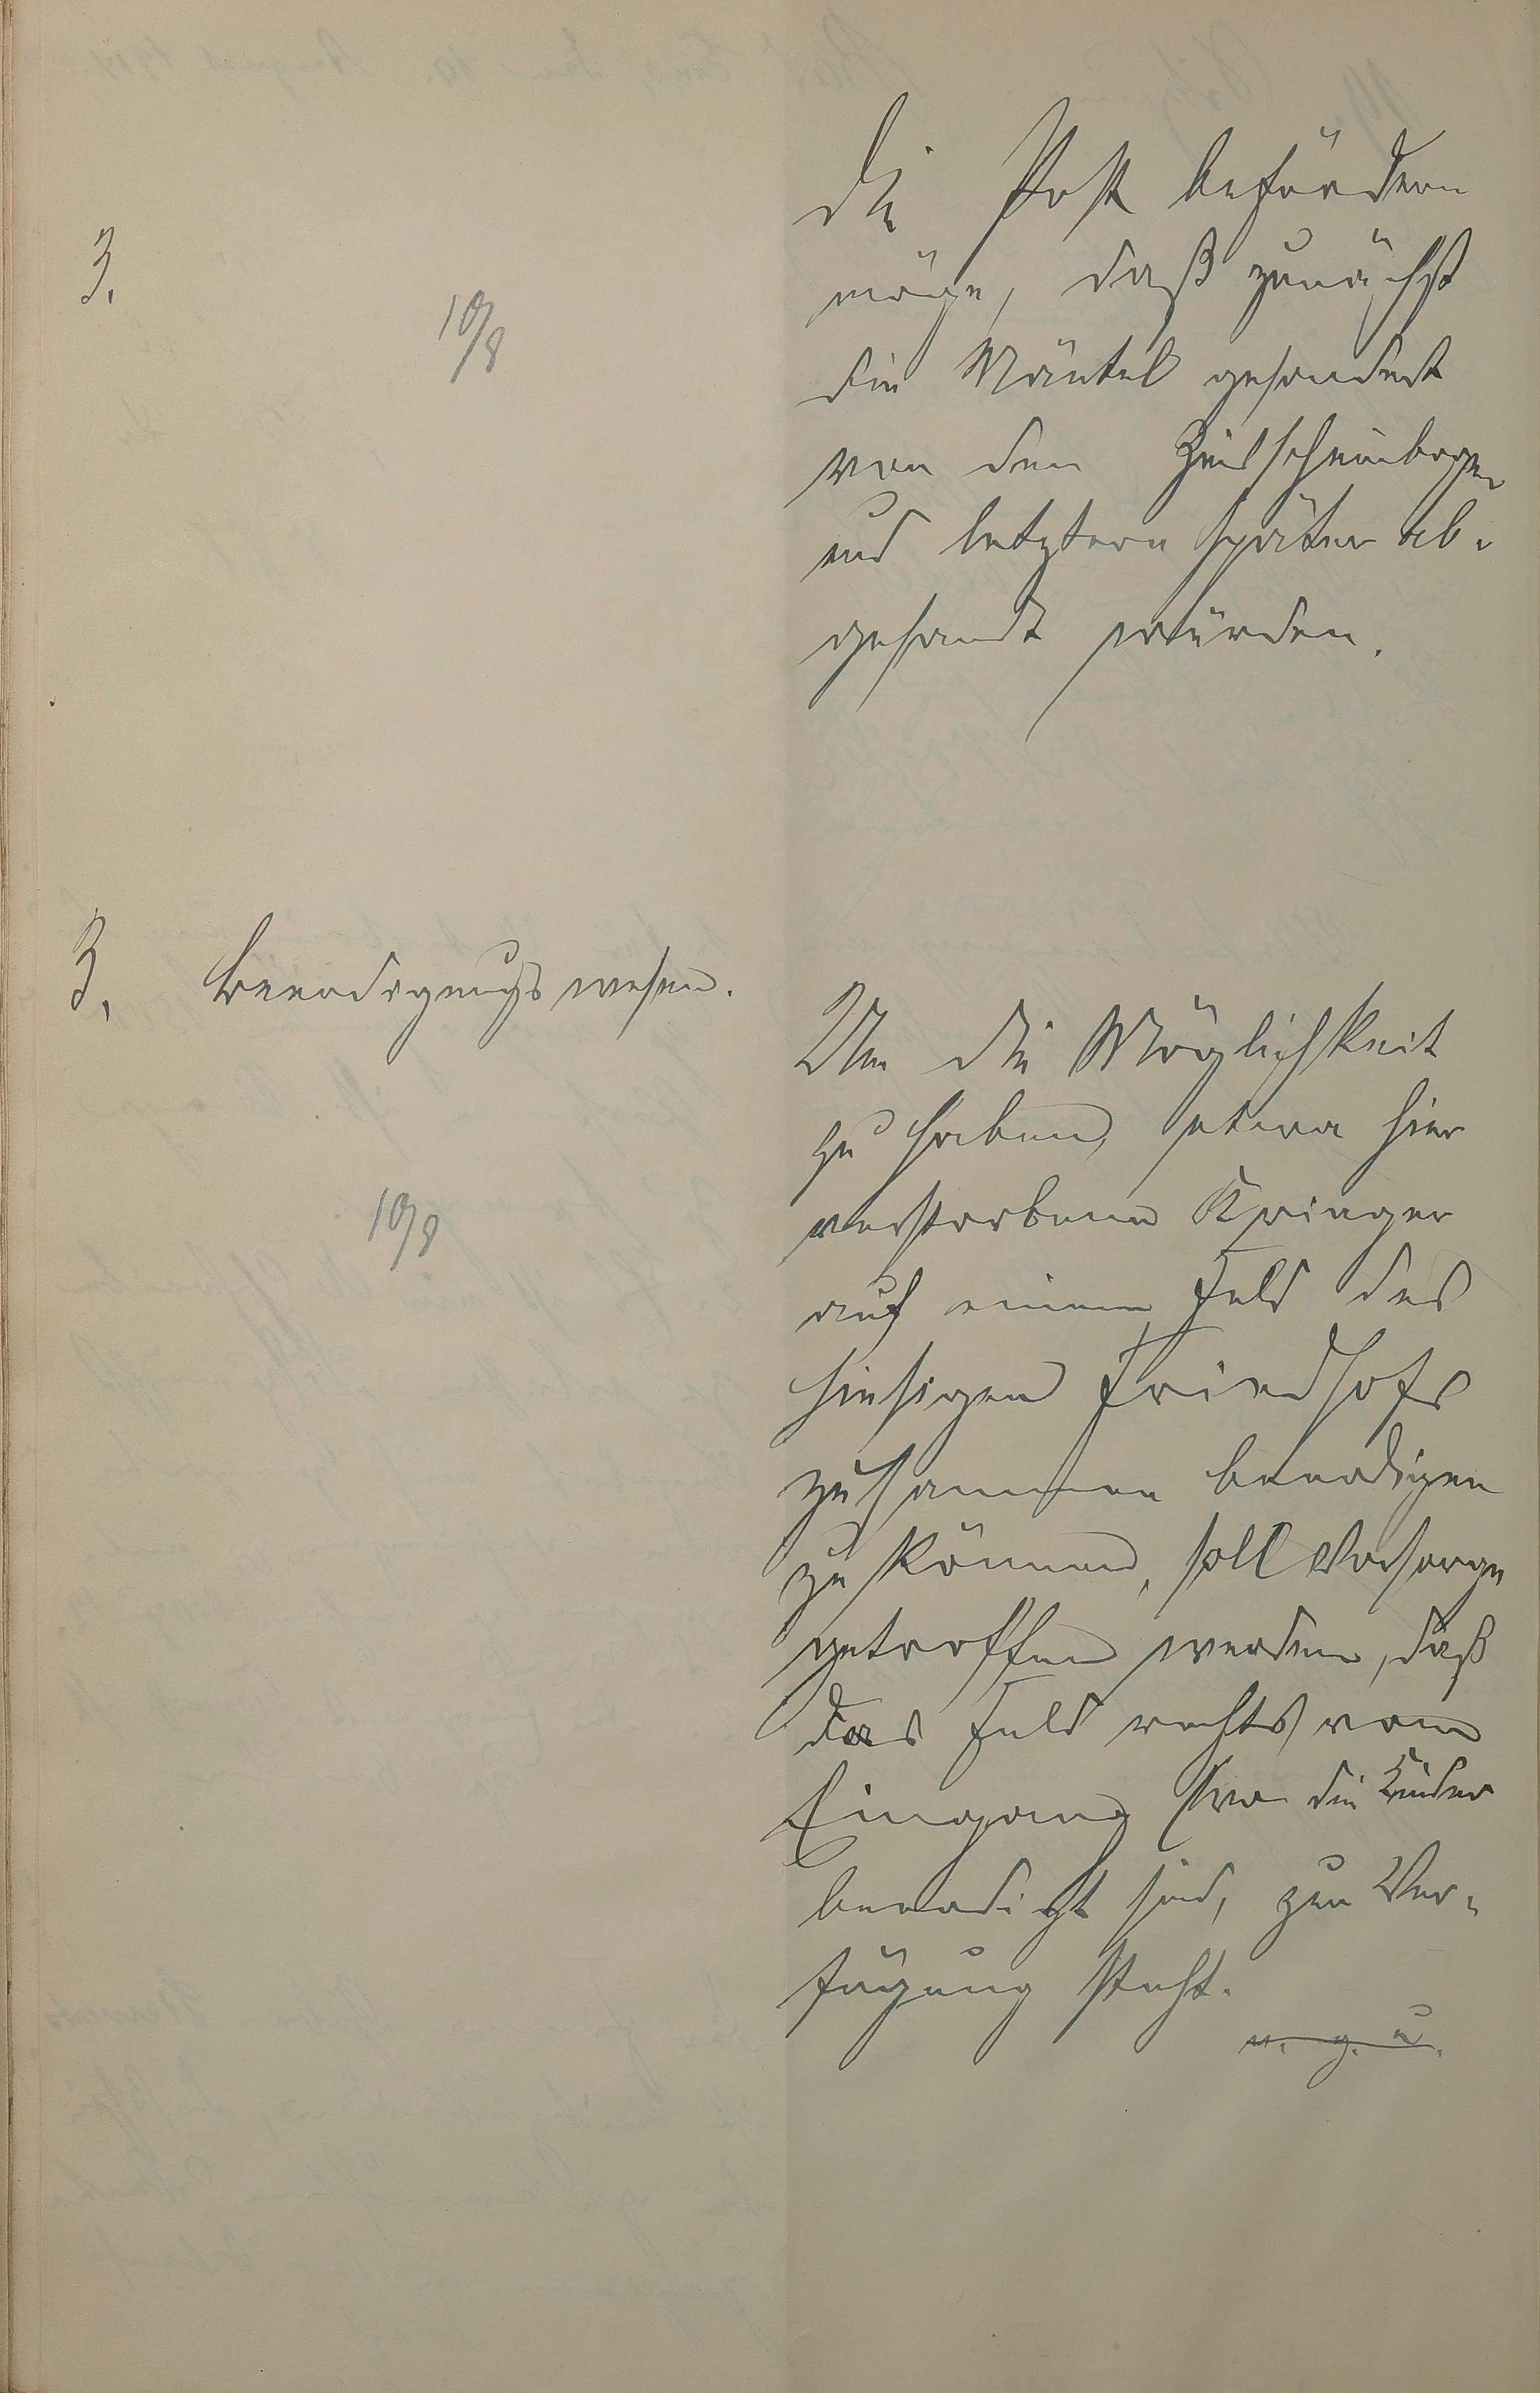 die Post befördern
3.
möge, daß zunächst
10/8
die Mäntel gesondert
von den Zinsscheinbogen
und letztere später ab-
gesandt würden.
3. Beerdigungswesen.
Um die Möglichkeit
zu haben, etwa hier
verstorbene Krieger
10/8
auf einem Feld des
hiesigen Friedhofs
zusammen beerdigen
zu können, soll Vorsorge
getroffen werden, daß
das Feld rechts vom
Eingang (wo die Kinder
beerdigt sind, zur Ver-
fügung steht.
v. g. u.